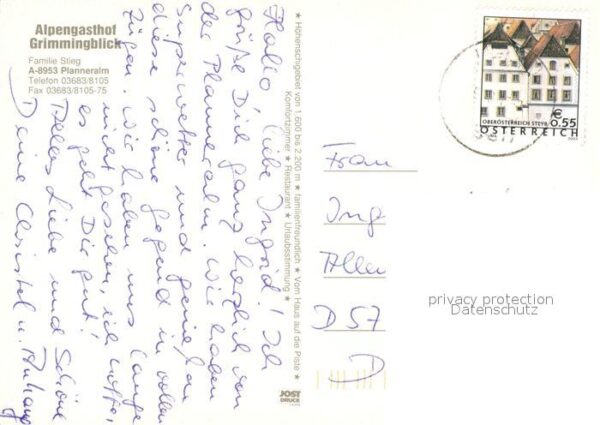 Alpengasthof
Grimmingblick
Familie Stieg
A-8953 Planneralm
Telefon 03683/8105
Fax 03683/8105-75
Hallo, liebe Ingrid! Ich
grüße Dich ganz herzlich von
der Planneralm. Wir haben
Superwetter und genießen
diese schöne Gegend in vollen
Zügen. Wir haben uns lange
nicht gesehen, ich hoffe,
es geht Dir gut!
Alles Liebe und Schöne
Deine Christel u.
* Höhenschigebiet von 1.600 bis 2.200 m * familienfreundlich * Vom Haus auf die Piste *
Komfortzimmer * Restaurant * Urlaubsstimmung *
JOST
DRUCK
€
0.55
OBERÖSTERREICH STEYR
ÖSTERREICH
Frau
Ing
D 57
D
privacy protection
Datenschutz